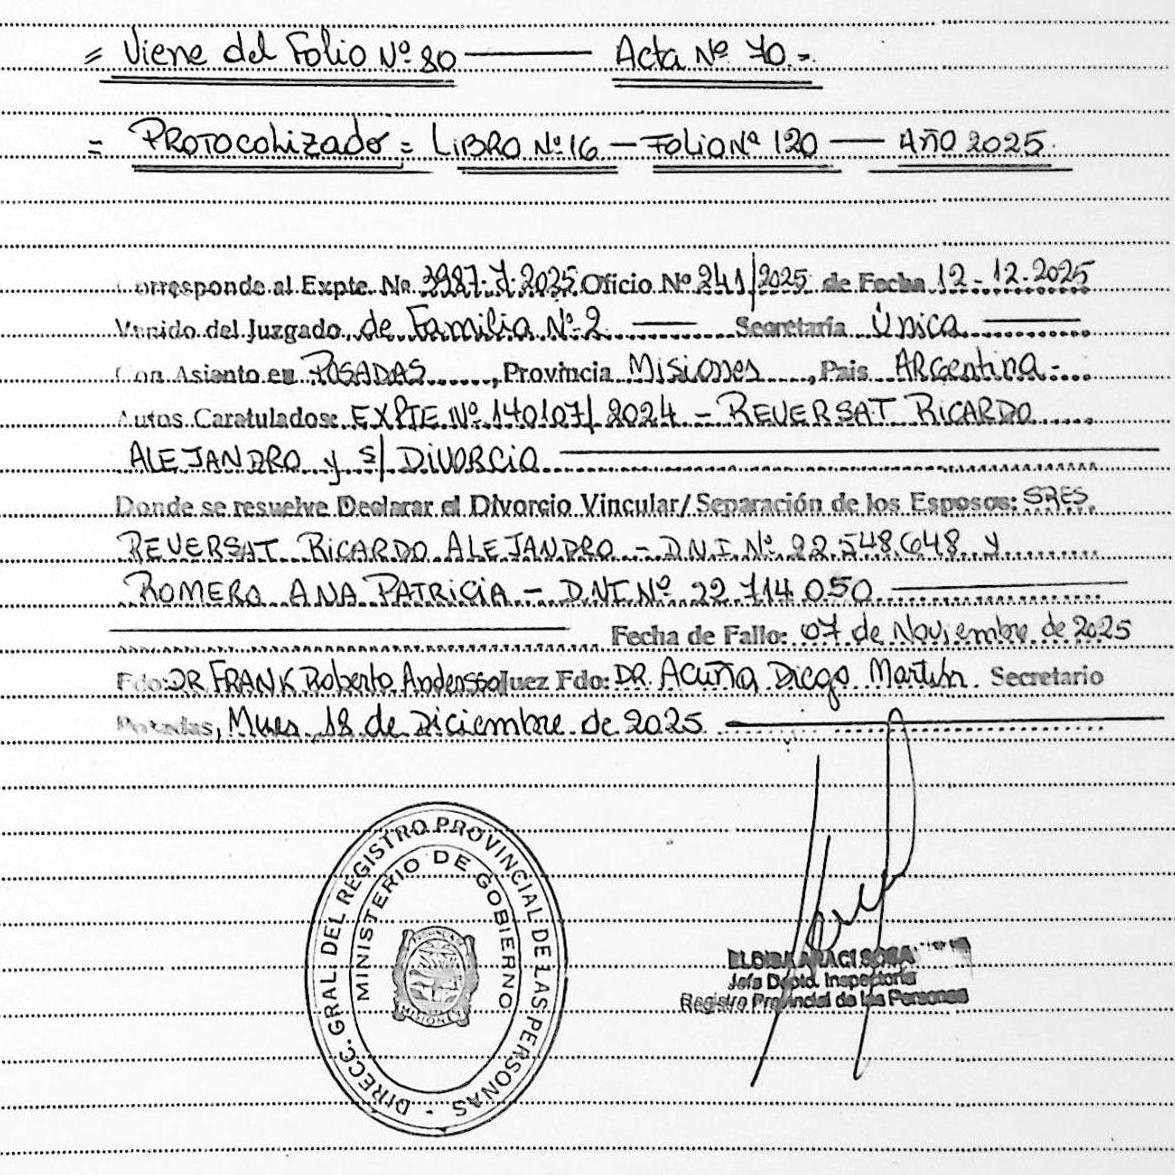 = Viene del Folio Nº 80 —— Acta Nº 70.=
= PROTOCOLIZADO = LIBRO Nº 16 — FOLIO Nº 120 — AÑO 2025.
Corresponde al Expte. No 3987-J-2025 Oficio Nº 241/2025 de Fecha 12-12-2025
Venido del Juzgado de Familia Nº 2 —— Secretaría Única ——
Con Asiento en POSADAS, Provincia Misiones, Pais ARgentina.-
Autos Caratulados: EXPTE Nº 140107/2024 – REVERSAT RICARDO
ALEJANDRO y S/ DIVORCIO ——
Donde se resuelve Declarar el Divorcio Vincular/ Separación de los Esposos: SRES.
REVERSAT RICARDO ALEJANDRO – D.N.I. Nº 22.548.648 y
ROMERO ANA PATRICIA – D.N.I. Nº 22.714.050 ——
—— Fecha de Fallo: 07 de Noviembre de 2025
Fdo: DR FRANK Roberto Juez Fdo: DR. ACUÑA Diego Martín. Secretario
Posadas, Mnes, 18 de Diciembre de 2025. ——
DIRECC. GRAL. DEL REGISTRO PROVINCIAL DE LAS PERSONAS -
MINISTERIO DE GOBIERNO
MISIONES
SOSA
Jefa Dpto. Inspectoría
Registro Provincial de las Personas